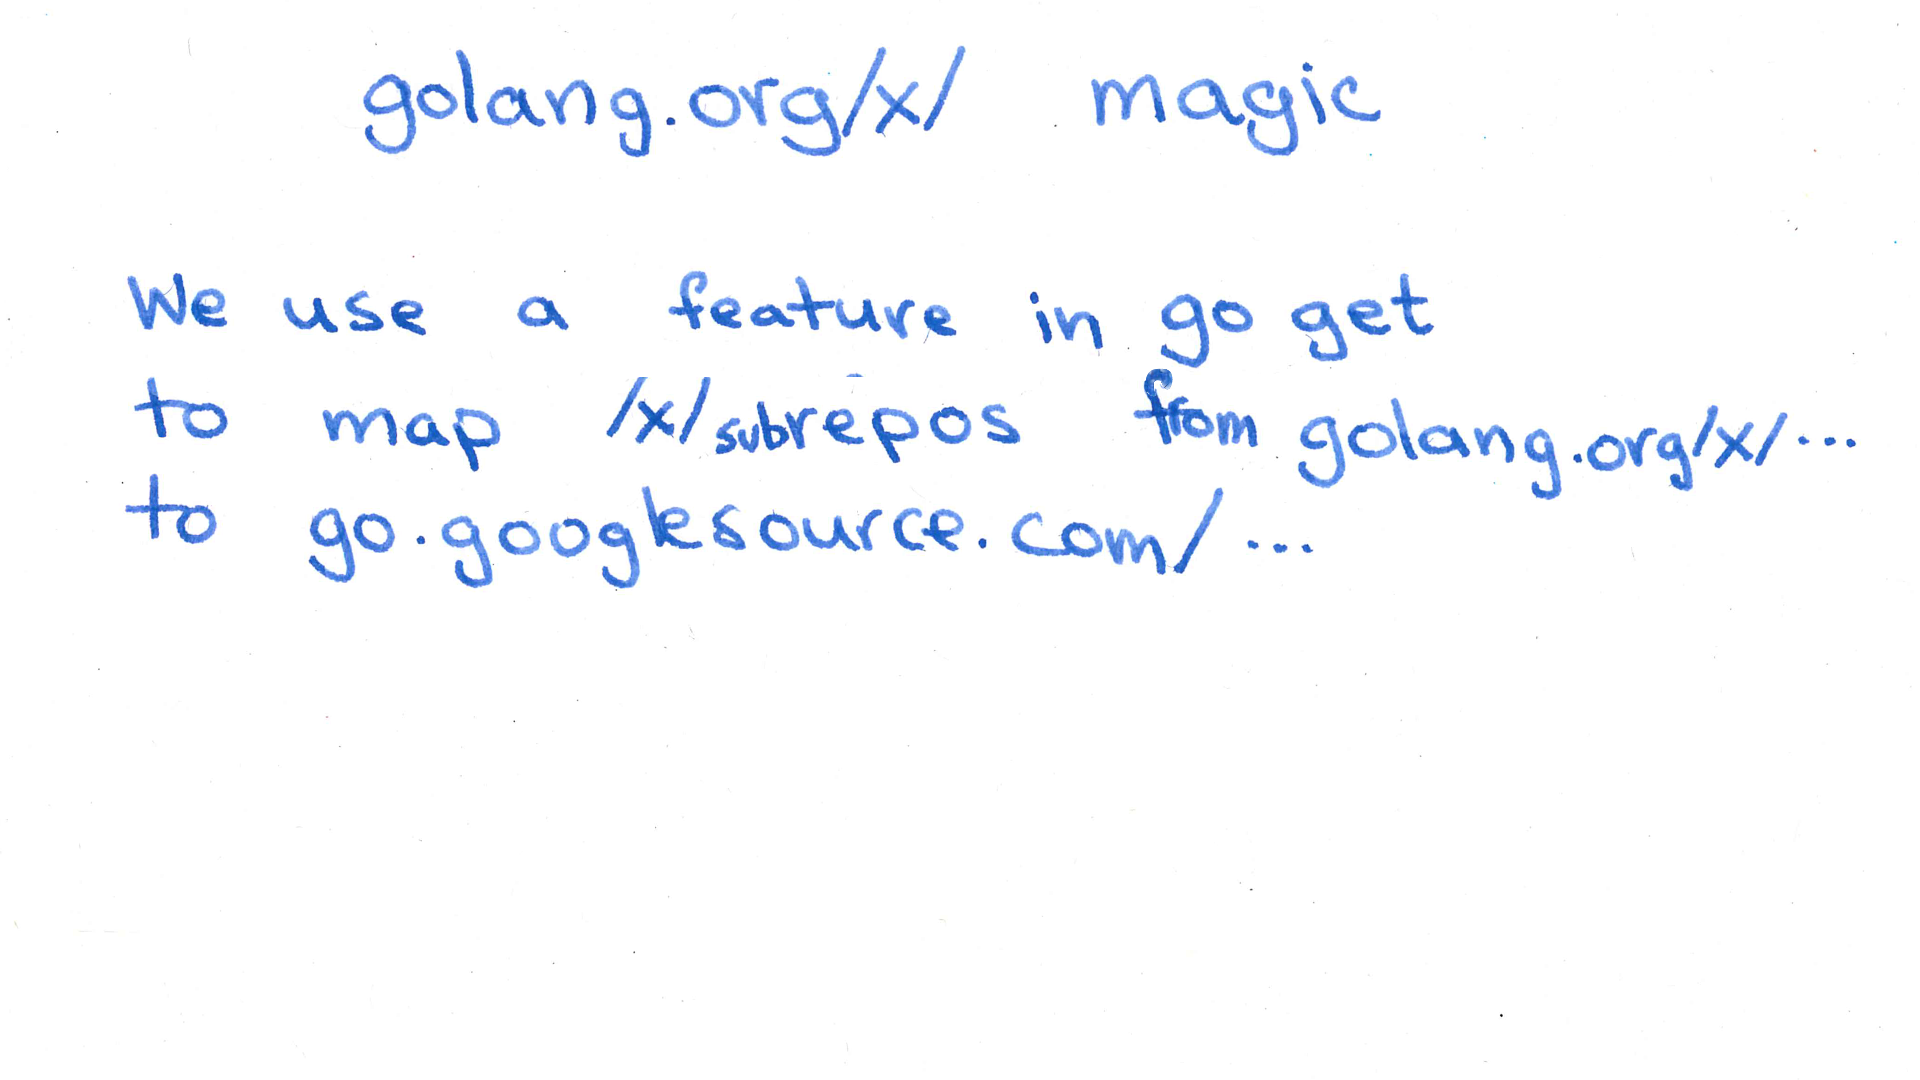 golang.org/x/ magic
We use a feature in go get
to map /x/ subrepos from golang.org/x/...
to go.googlesource.com/...